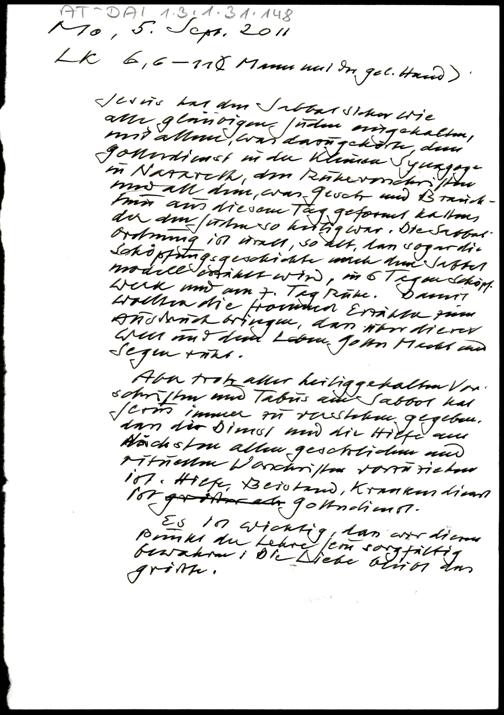 AT-DAI 1.3.1.31.148
Mo, 5. Sept. 2011
LK 6,6-11 (Mann mit der gel. Hand)
Jesus hat den Sabbat sicher wie
alle gläubigen Juden eingehalten,
mit allem, was dazugehörte, dem
Gottesdienst in der kleinen Synagoge
in Nazareth, den Ruhevorschriften
und all dem, was Gesetz und Brauch-
tum aus diesem Tag geformt hatten,
der den Juden so heilig war. Die Sabbat-
ordnung ist uralt, so alt, dass sogar die
Schöpfungsgeschichte nach dem Sabbat
modell erzählt wird, in 6 Tagen Schöpf.
werk und am 7. Tag Ruhe. Damit
wollten die frommen Erzähler zum
Ausdruck bringen, dass über dieser
Welt und dem Leben Gottes Macht und
Segen ruht.
Aber trotz aller heiliggehaltenen Vor-
schriften und Tabus am Sabbat hat
Jesus immer zu verstehen gegeben,
dass der Dienst und die Hilfe am
Nächsten allen gesetzlichen und
rituellen Vorschriften vorzuziehen
ist. Hilfe, Beistand, Krankendienst
ist größer als Gottesdienst.
Es ist wichtig, dass wir diesen
Punkt der Lehre Jesu sorgfältig
bewahren: Die Liebe bleibt das
größte.